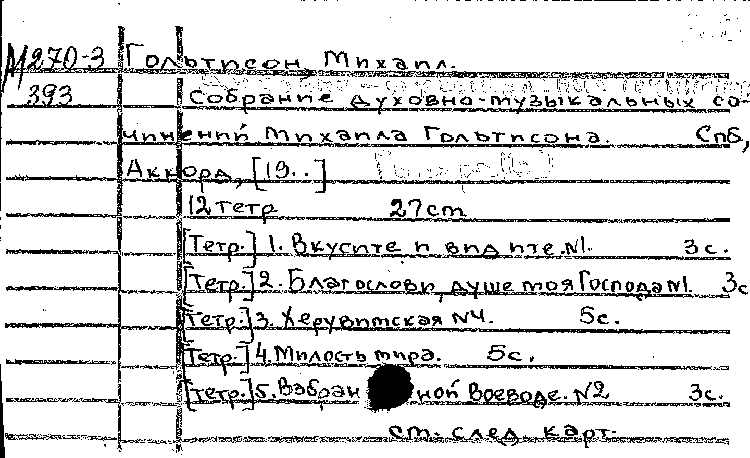 М270-3 Гольтисон, Михаил.
393 Собрание духовно-музыкальных со-
чинений Михаила Гольтисона. Спб,
Аккорд, [19..]
12 тетр 27 cm
[Тетр.] 1. Вкусите и видите. №1. 3с.
[Тетр.] 2. Благослови, душе моя Господа №1. 3с
[Тетр.] 3. Херувимская №4. 5с.
[Тетр.] 4. Милость мира. 5с.
[Тетр.] 5. Взбран ной Воеводе. №2 3с.
см. след. карт.